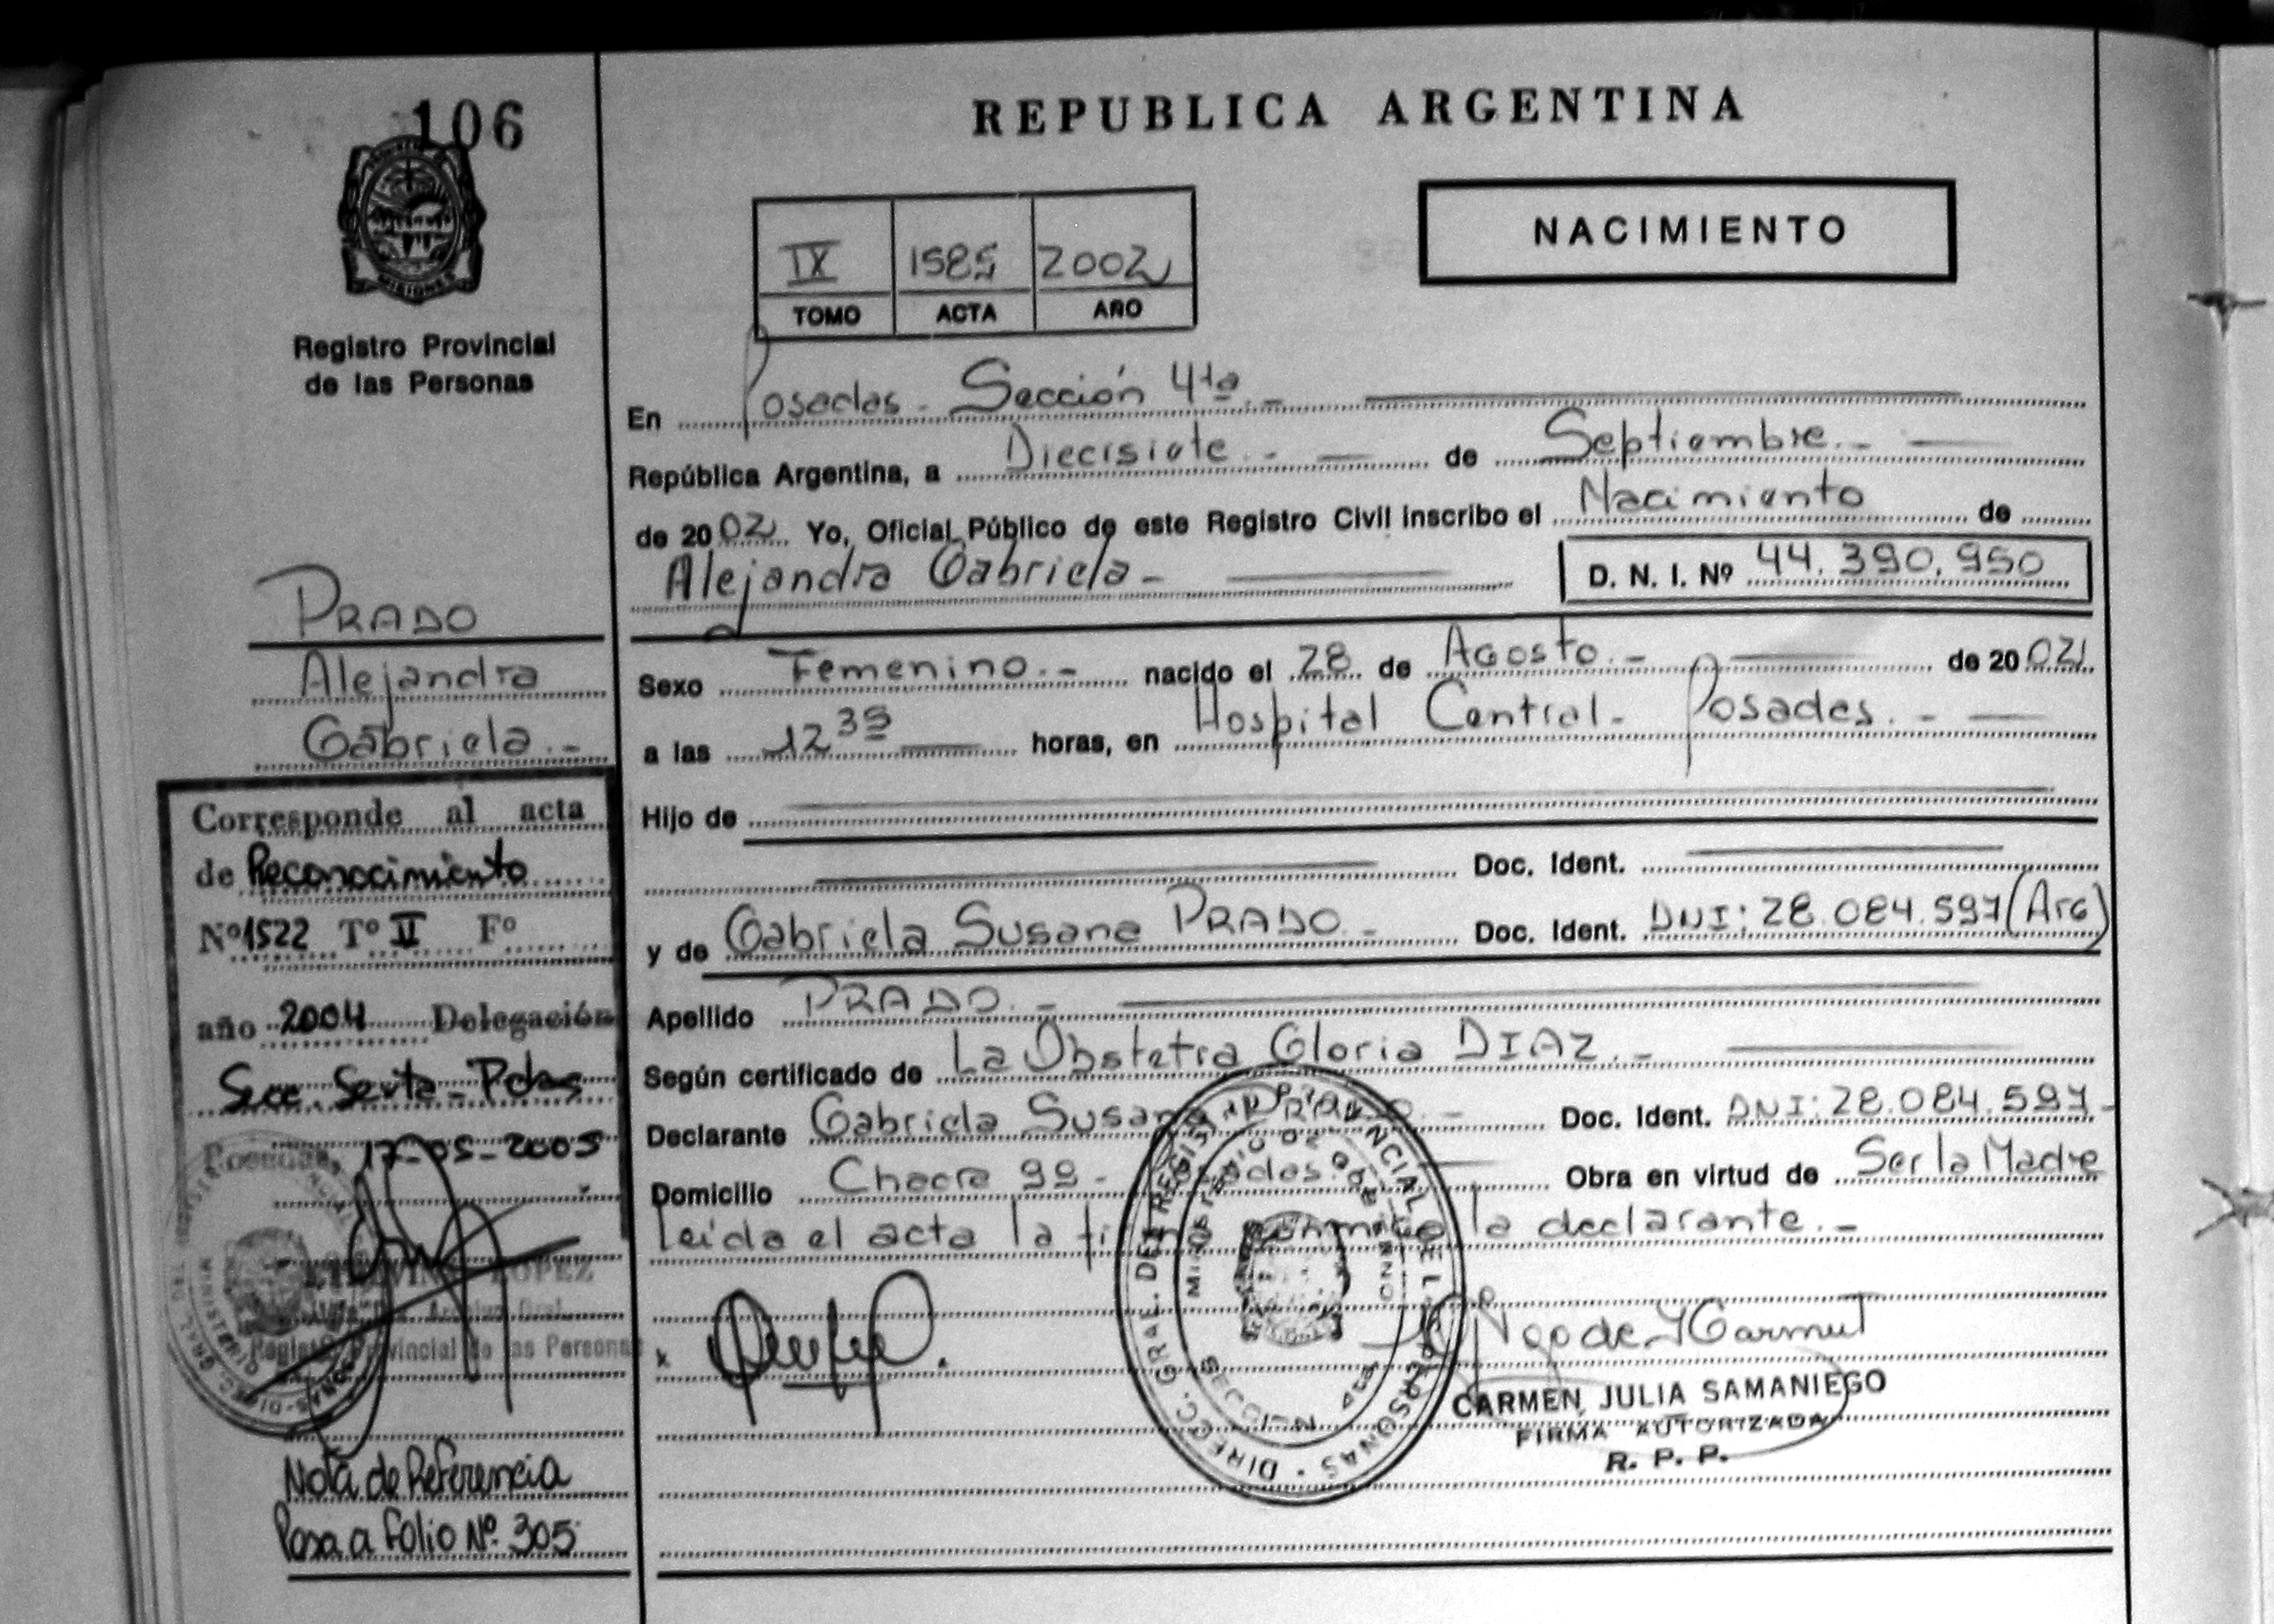 106
REPUBLICA ARGENTINA
MISIONES
Registro Provincial
de las Personas
NACIMIENTO
IX 1585 2002
TOMO ACTA AÑO
En Posadas - Sección 4ta.-
República Argentina, a Diecisiete.- de Septiembre.-
de 2002 Yo, Oficial Público de este Registro Civil inscribo el Nacimiento de
Alejandra Gabriela - D. N. I. Nº 44.390.950
Sexo Femenino.- nacido el 28 de Agosto.- de 2002
a las 12 39 horas, en Hospital Central - Posadas.-
Hijo de
Doc. Ident.
y de Gabriela Susana PRADO.- Doc. Ident. DNI: 28.084.597 (Arg)
Apellido PRADO.-
Según certificado de La Obstetra Gloria DIAZ.-
Declarante Gabriela Susana PRADO.- Doc. Ident. DNI: 28.084.597-
Domicilio Chacra 99 - Posadas.- Obra en virtud de Ser la Madre
Leida el acta la firma conmigo la declarante.-
x
CARMEN JULIA SAMANIEGO
FIRMA AUTORIZADA
R. P. P.
PRADO
Alejandra
Gabriela.-
Corresponde al acta
de Reconocimiento
Nº 1522 Tº II Fº
año 2004 Delegación
Secc. Sexta - Pdas
Posadas, 17-05-2005
LOPEZ
Registro Provincial de las Personas
Nota de Referencia
Pasa a Folio Nº 305